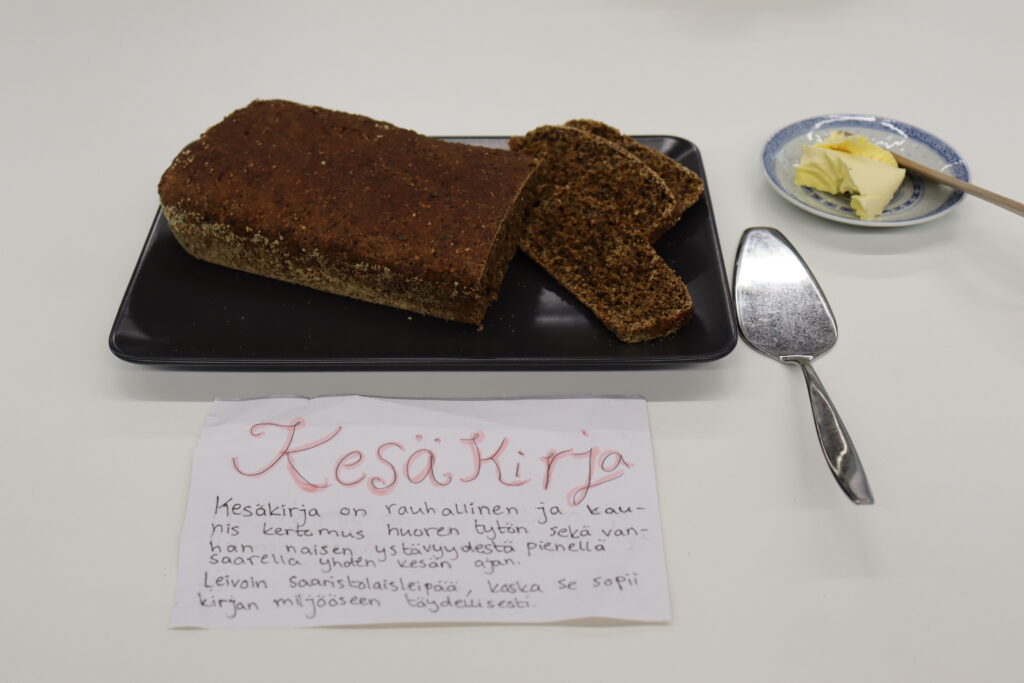 Kesäkirja
Kesäkirja on rauhallinen ja kau-
nis kertomus nuoren tytön sekä van-
han naisen ystävyydestä pienellä
saarella yhden kesän ajan.
Leivoin saaristolaisleipää, koska se sopii
kirjan miljööseen täydellisesti.